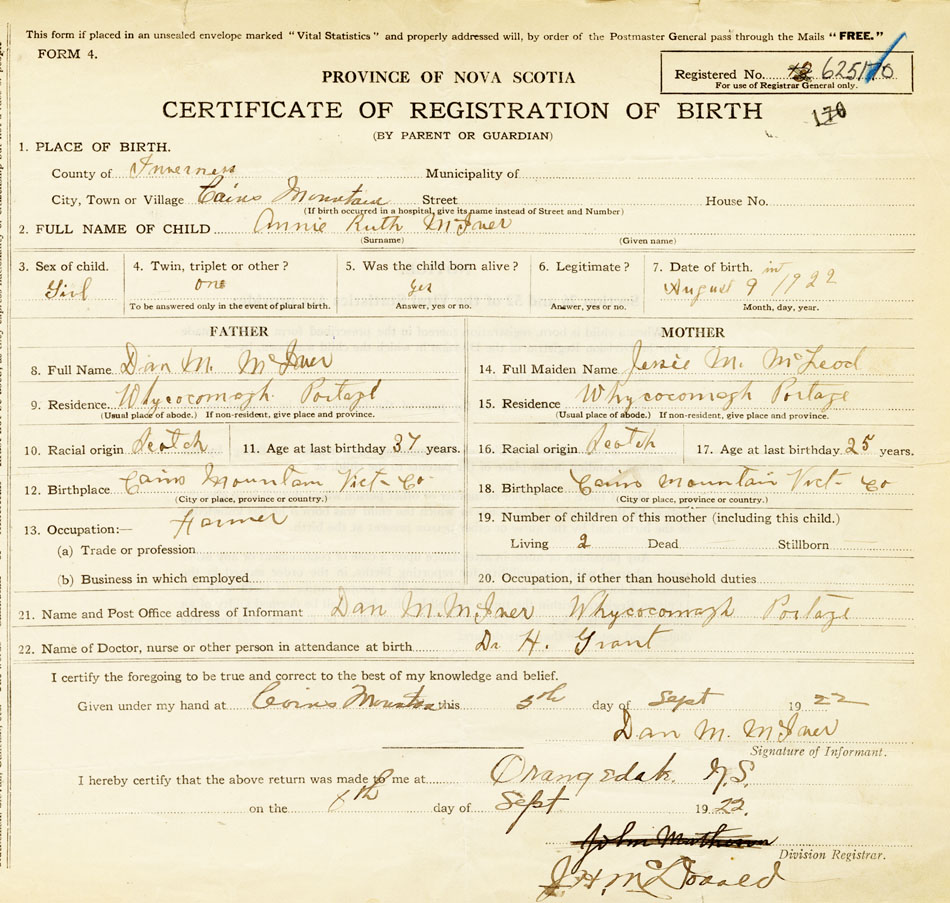 This form if placed in an unsealed envelope marked "Vital Statistics" and properly addressed will, by order of the Postmaster General pass through the Mails "FREE."
FORM 4.
Registered No. 62510
For use of Registrar General only.
PROVINCE OF NOVA SCOTIA
CERTIFICATE OF REGISTRATION OF BIRTH
170
(BY PARENT OR GUARDIAN)
1. PLACE OF BIRTH.
County of Inverness Municipality of
City, Town or Village Cains Mountain Street House No.
(If birth occurred in a hospital, give its name instead of Street and Number)
2. FULL NAME OF CHILD Annie Ruth McIver
(Surname) (Given name)
3. Sex of child. 4. Twin, triplet or other? 5. Was the child born alive? 6. Legitimate? 7. Date of birth. in
Girl one yes August 9 1922
To be answered only in the event of plural birth. Answer, yes or no. Answer, yes or no. Month, day, year.
FATHER MOTHER
8. Full Name Dan M. McIver 14. Full Maiden Name Jessie M. McLeod
9. Residence. Whycocomagh Portage 15. Residence Whycocomagh Portage
(Usual place of abode.) If non-resident, give place and province. (Usual place of abode.) If non-resident, give place and province.
10. Racial origin Scotch 11. Age at last birthday 37 years. 16. Racial origin Scotch 17. Age at last birthday 25 years.
12. Birthplace Cains Mountain Vict- Co 18. Birthplace Cains Mountain Vict- Co
(City or place, province or country.) (City or place, province or country.)
13. Occupation:— Farmer 19. Number of children of this mother (including this child.)
(a) Trade or profession Living 2 Dead Stillborn
(b) Business in which employed 20. Occupation, if other than household duties
21. Name and Post Office address of Informant Dan M. McIver Whycocomagh Portage
22. Name of Doctor, nurse or other person in attendance at birth Dr H. Grant
I certify the foregoing to be true and correct to the best of my knowledge and belief.
Given under my hand at Cains Mountain this 5th day of Sept 1922
Dan M. McIver
Signature of Informant.
I hereby certify that the above return was made to me at Orangedale N.S.
on the 6th day of Sept 1922.
John Matheson
Division Registrar.
J. H. McDonald